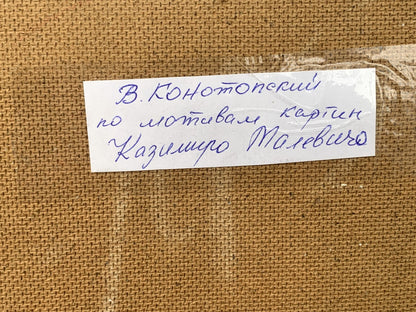 В. Конотопский
по мотивам картин
Казимира Малевича